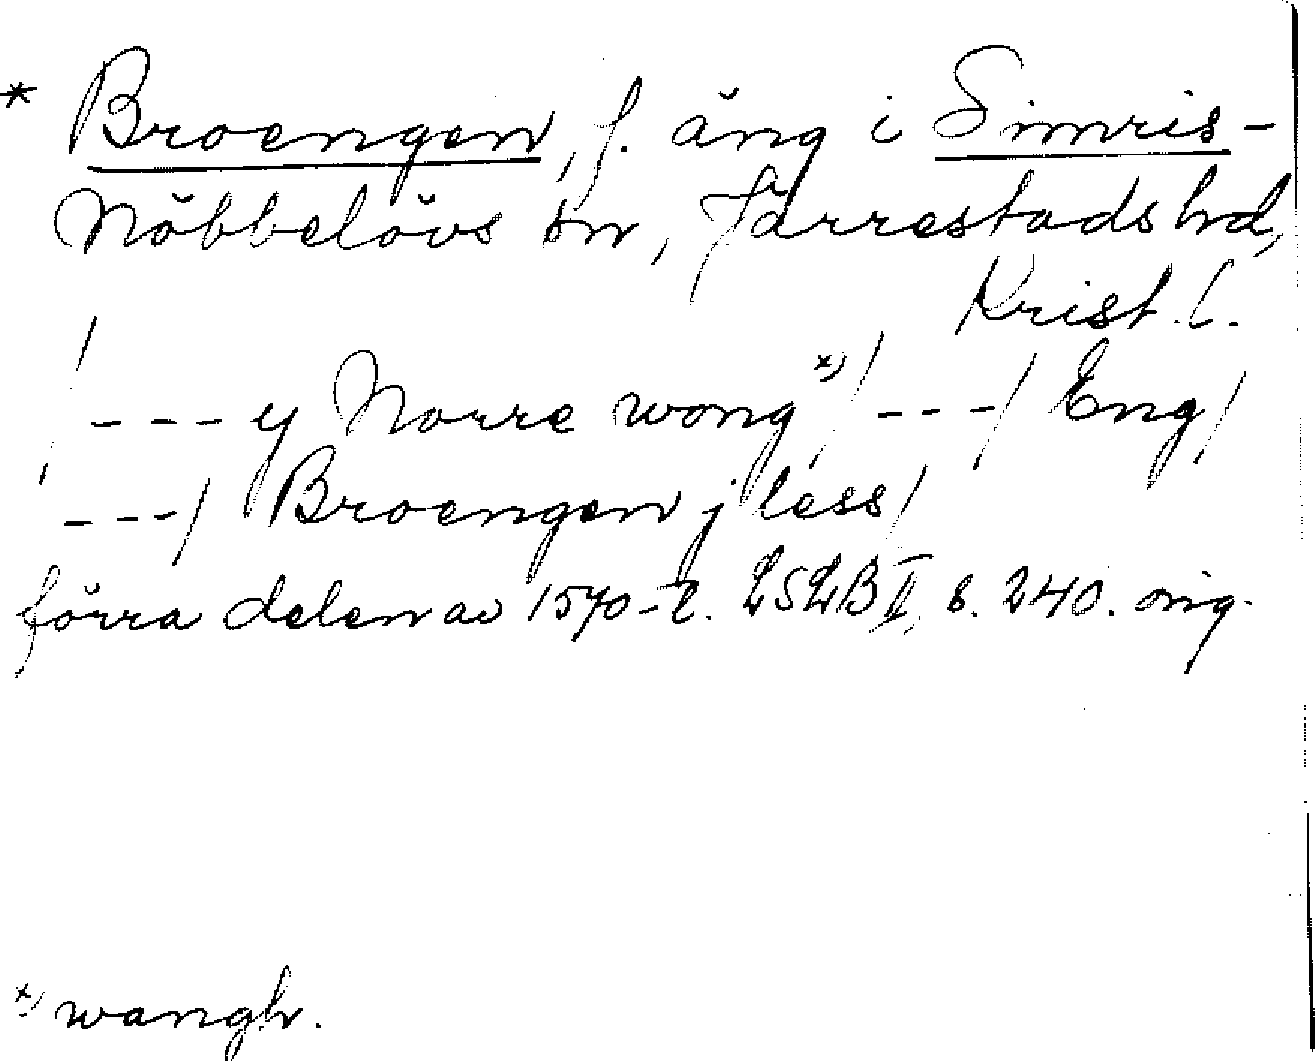 * Broengen, f. äng i Simris-
Nöbbelövs sn, Järrestads hd,
Krist. l.
/ --- y Norre wong x) / --- / Eng /
--- / Broengen j less /
förra delen av 1570-t. LSLB II, s. 240. orig.
x) wangh.